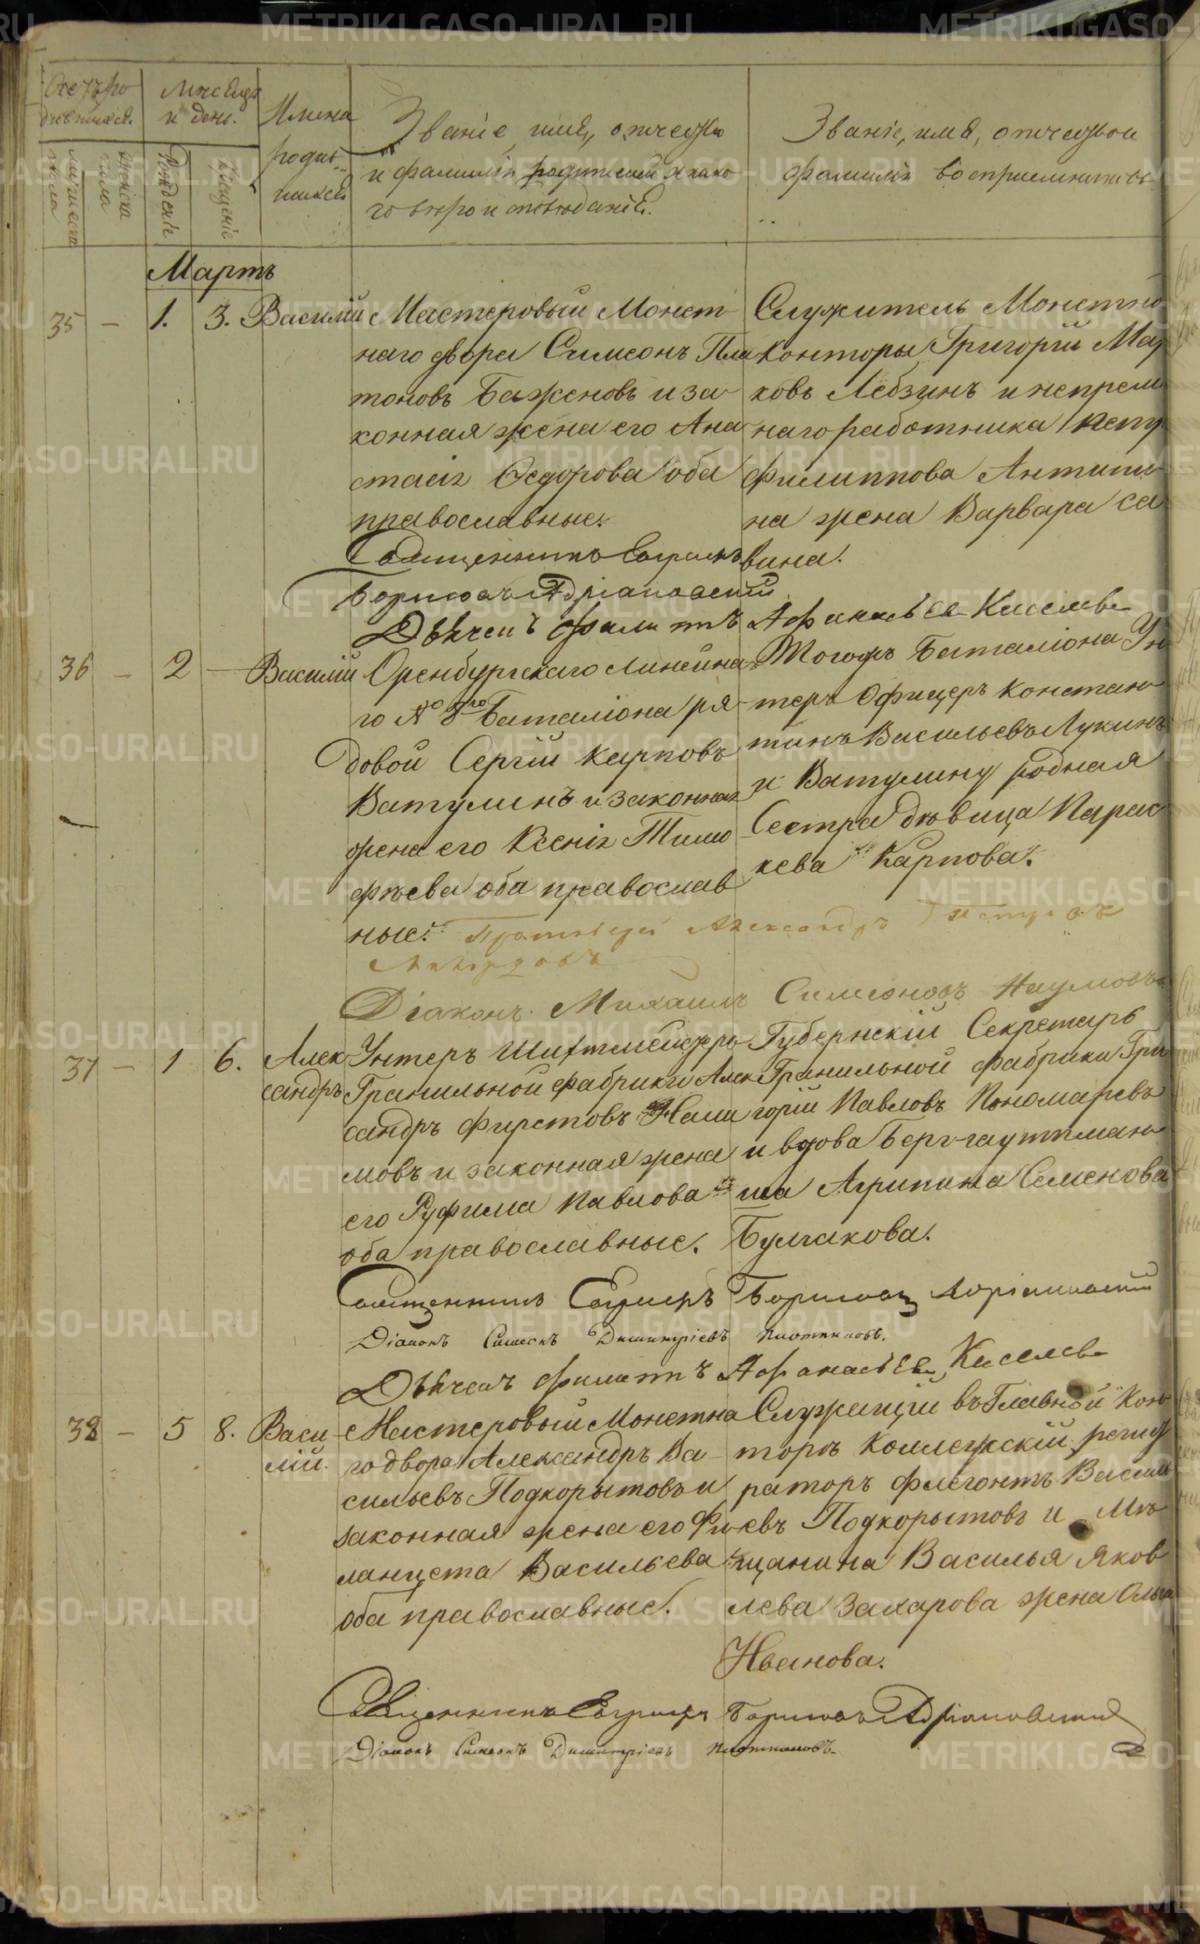 METRIKI.GASO-URAL.RU
Счетъ ро
дившихся.
Мѣсяцъ
и день.
Имена
родив
шихся
Званіе, имя, отчество
и фамилія родителей и како
го вѣроисповѣданія.
Званіе, имя, отчество и
фамилія воспріемниковъ
мужеска
пола
женска
пола
Рожденіе
Крещеніе
Мартъ
35 — 1. 3. Василій
Мастеровый Монет
наго двора Симеонъ Пла
тоновъ Баженовъ и за-
конная жена его Ана
стасія Ѳедорова оба
православные.
Служитель Монетной
конторы Григорій Мар
ковъ Лебзинъ и непрем
наго работника Петр
Филиппова Антипи
на жена Варвара Са
вина.
Священникъ
Борисовъ Адріановскій
Дьячекъ Филатъ Афанасьевъ Киселевъ
36 — 2 — Василій
Оренбургскаго Линейна
го № 8го Баталіона ря-
довой Сергій Карповъ
Ватулинъ и законная
жена его Ксенія Тимо
фѣева оба православ
ные.
Тогожъ Баталіона Ун
теръ Офицеръ Констан-
тинъ Васильевъ Лукинъ
и Ватулину родная
Сестра дѣвица Парас
кева Карпова.
Протоіерей Александръ
Діаконъ Михаилъ Симеоновъ Наумовъ
37 — 1 6. Алек
сандръ
Унтеръ Шихтмейстеръ
Гранильной фабрики Алек
сандръ Фирстовъ Нали
мовъ и законная жена
его Руфима Павлова
оба православные.
Губернскій Секретарь
Гранильной фабрики Гри
горій Павловъ Пономаревъ
и вдова Берггауптман-
ша Агрипина Семенова
Булгакова.
Священникъ Борисовъ Адріановскій
Діаконъ Симеонъ Димитріевъ Плотниковъ.
Дьячекъ Филатъ Афанасьевъ Киселевъ
38 — 5 8. Васи
лій.
Мастеровый Монетна
го двора Александръ Ва-
сильевъ Подкорытовъ и
законная жена его Фи
ланцета Васильева
оба православные.
Служащій въ Главной Кон
торѣ Коллежскій регист
раторъ Флегонтъ Василь
евъ Подкорытовъ и Мѣ
щанина Василья Яков
лева Захарова жена Ольга
Иванова.
Священникъ Борисовъ Адріановскій
Діаконъ Симеонъ Димитріевъ Плотниковъ